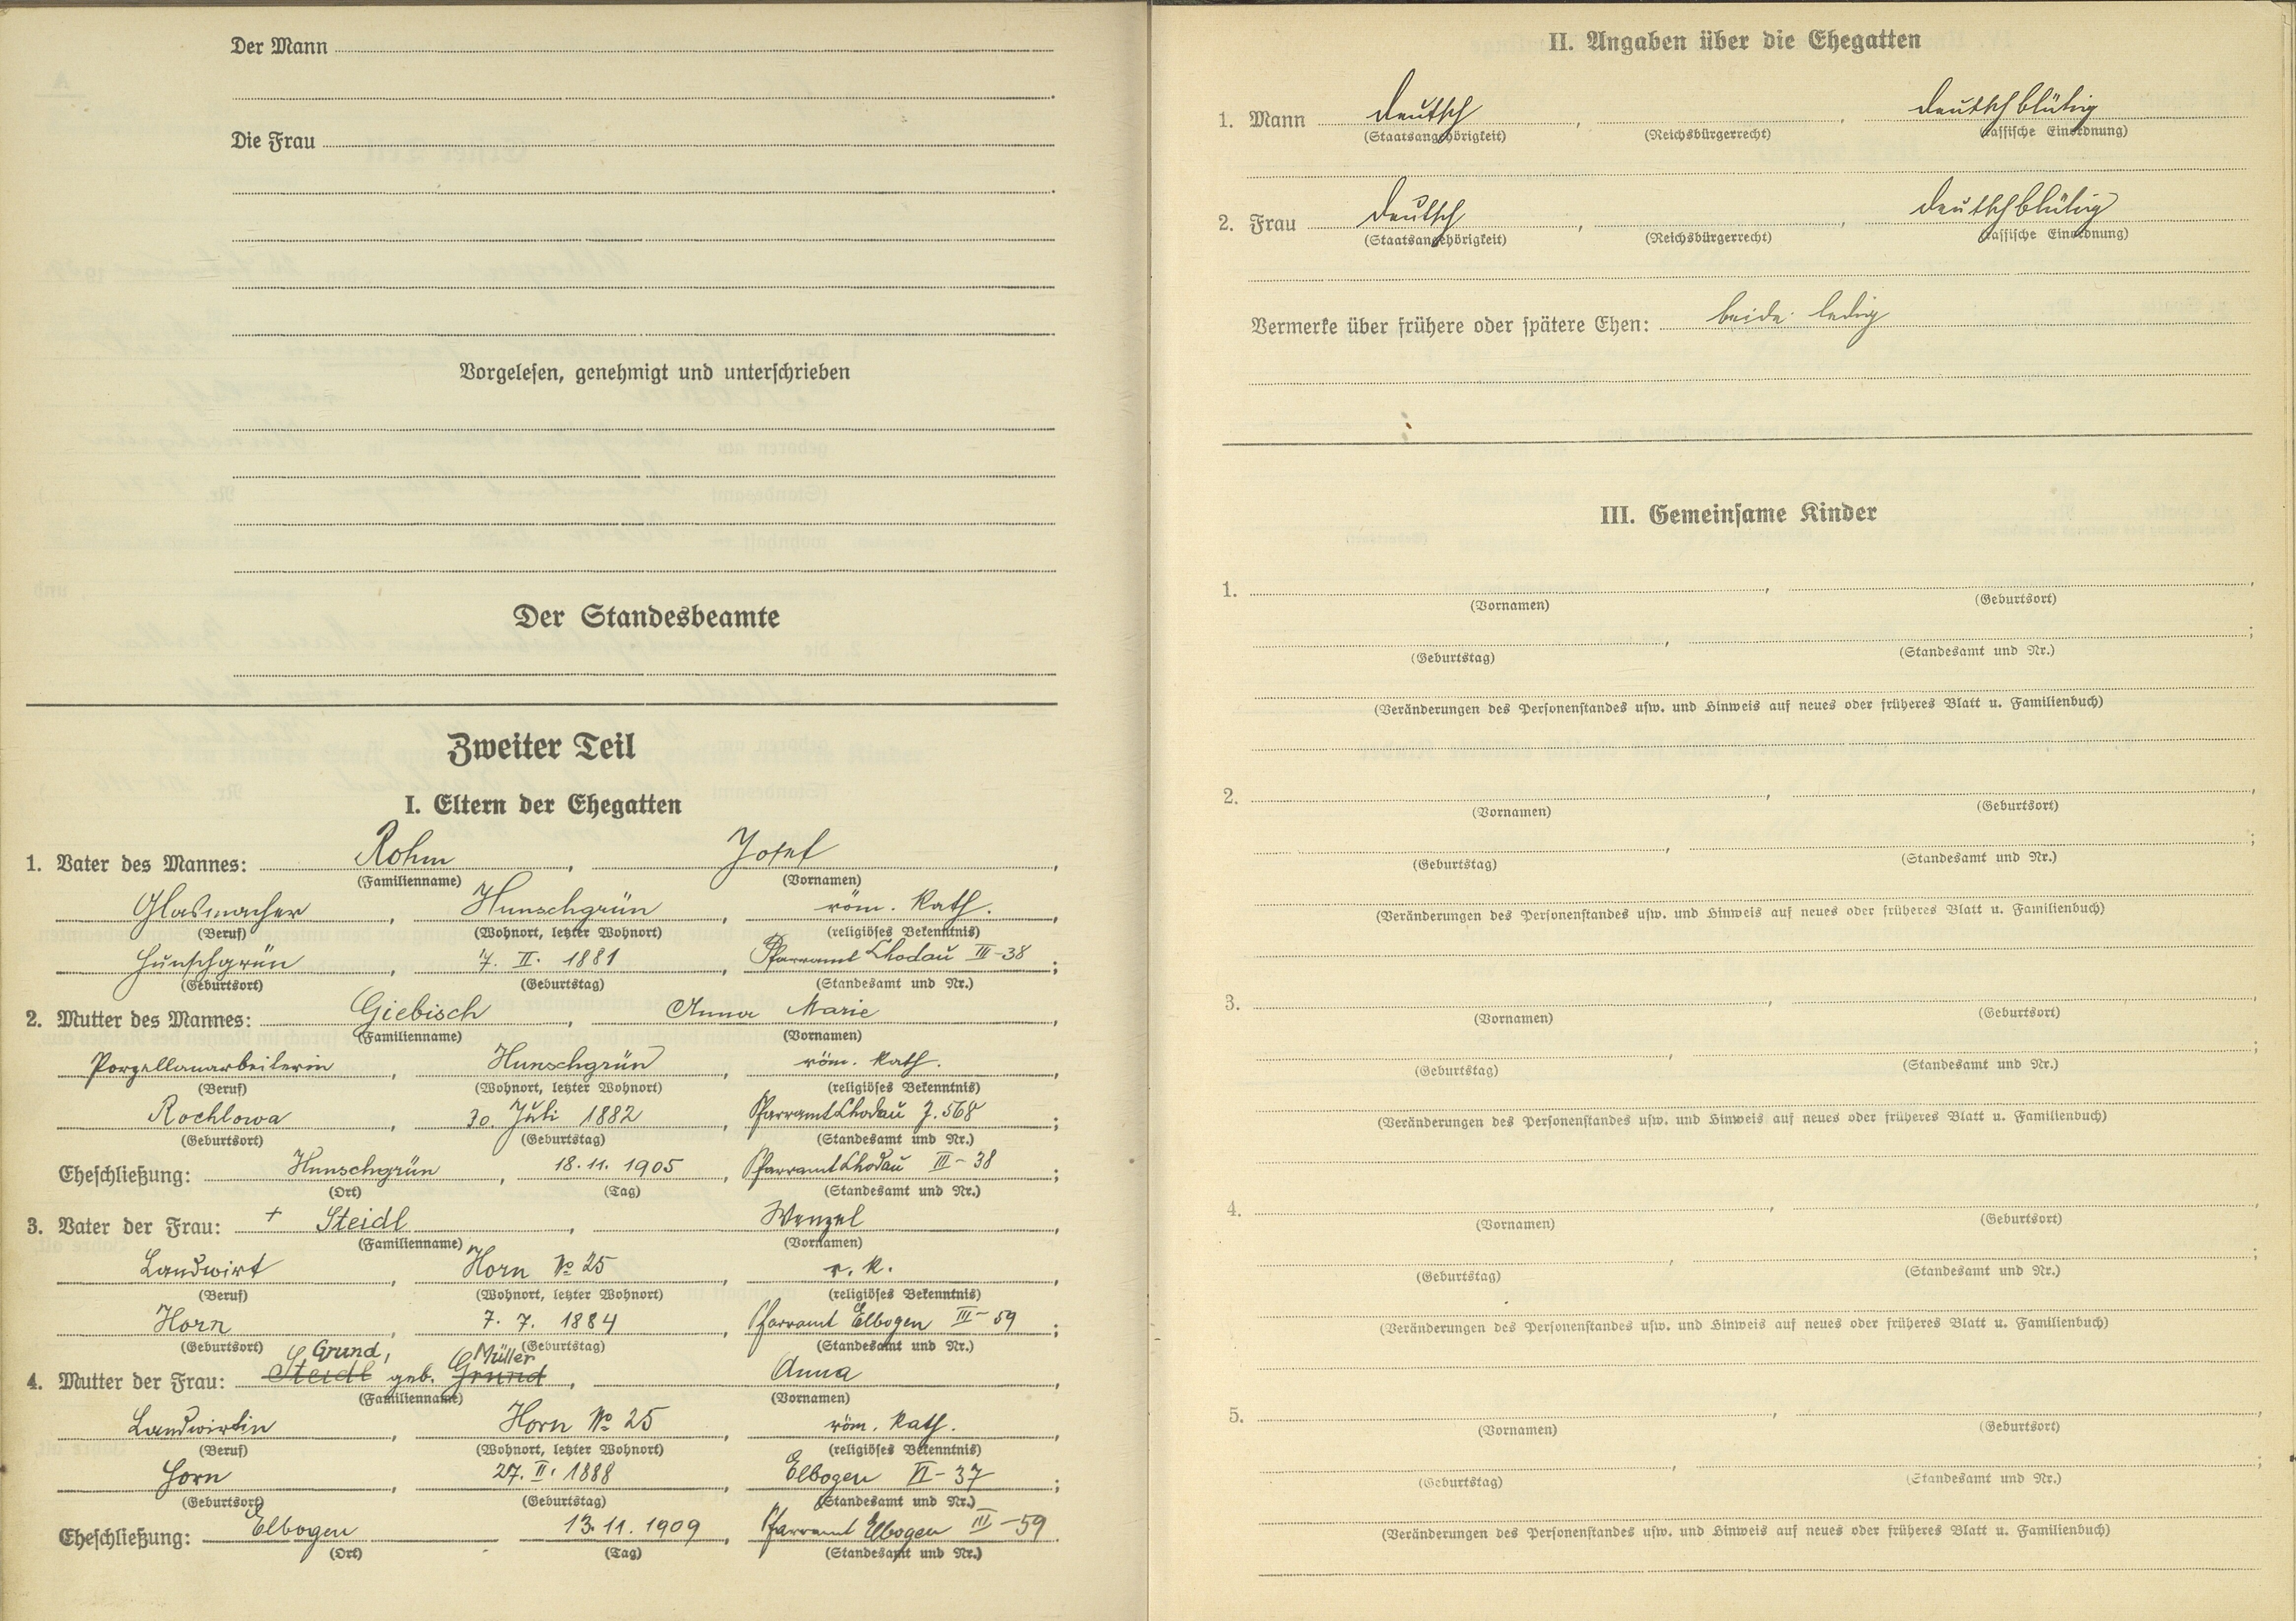 Der Mann
Die Frau
Vorgelesen, genehmigt und unterschrieben
Der Standesbeamte
Zweiter Teil
I. Eltern der Ehegatten
1. Vater des Mannes: Rohm, Josef,
(Familienname) (Vornamen)
Glasmacher, Hunschgrün, röm. kath.,
(Beruf) (Wohnort, letzter Wohnort) (religiöses Bekenntnis)
Hunschgrün, 7. II. 1881, Pfarramt Chodau III-38;
(Geburtsort) (Geburtstag) (Standesamt und Nr.)
2. Mutter des Mannes: Giebisch, Anna Marie,
(Familienname) (Vornamen)
Porzellanarbeiterin, Hunschgrün, röm. kath.,
(Beruf) (Wohnort, letzter Wohnort) (religiöses Bekenntnis)
Rochlowa, 30. Juli 1882, Pfarramt Chodau J. 568;
(Geburtsort) (Geburtstag) (Standesamt und Nr.)
Eheschließung: Hunschgrün, 18.11.1905, Pfarramt Chodau III-38;
(Ort) (Tag) (Standesamt und Nr.)
3. Vater der Frau: + Steidl, Wenzel,
(Familienname) (Vornamen)
Landwirt, Horn No 25, r. k.,
(Beruf) (Wohnort, letzter Wohnort) (religiöses Bekenntnis)
Horn, 7. 7. 1884, Pfarramt Elbogen III-59;
(Geburtsort) (Geburtstag) (Standesamt und Nr.)
Grund, Müller
4. Mutter der Frau: Steidl geb. Grund, Anna,
(Familienname) (Vornamen)
Landwirtin, Horn No 25, röm. kath.,
(Beruf) (Wohnort, letzter Wohnort) (religiöses Bekenntnis)
Horn, 27. II. 1888, Elbogen VI-37;
(Geburtsort) (Geburtstag) (Standesamt und Nr.)
Eheschließung: Elbogen, 13.11.1909, Pfarramt Elbogen III-59.
(Ort) (Tag) (Standesamt und Nr.)
II. Angaben über die Ehegatten
1. Mann deutsch, , deutschblütig
(Staatsangehörigkeit) (Reichsbürgerrecht) (rassische Einordnung)
2. Frau deutsch, , deutschblütig
(Staatsangehörigkeit) (Reichsbürgerrecht) (rassische Einordnung)
Vermerke über frühere oder spätere Ehen: beide ledig
III. Gemeinsame Kinder
1. , ,
(Vornamen) (Geburtsort)
, ;
(Geburtstag) (Standesamt und Nr.)
(Veränderungen des Personenstandes usw. und Hinweis auf neues oder früheres Blatt u. Familienbuch)
2. , ,
(Vornamen) (Geburtsort)
, ;
(Geburtstag) (Standesamt und Nr.)
(Veränderungen des Personenstandes usw. und Hinweis auf neues oder früheres Blatt u. Familienbuch)
3. , ,
(Vornamen) (Geburtsort)
, ;
(Geburtstag) (Standesamt und Nr.)
(Veränderungen des Personenstandes usw. und Hinweis auf neues oder früheres Blatt u. Familienbuch)
4. , ,
(Vornamen) (Geburtsort)
, ;
(Geburtstag) (Standesamt und Nr.)
(Veränderungen des Personenstandes usw. und Hinweis auf neues oder früheres Blatt u. Familienbuch)
5. , ,
(Vornamen) (Geburtsort)
, ;
(Geburtstag) (Standesamt und Nr.)
(Veränderungen des Personenstandes usw. und Hinweis auf neues oder früheres Blatt u. Familienbuch)